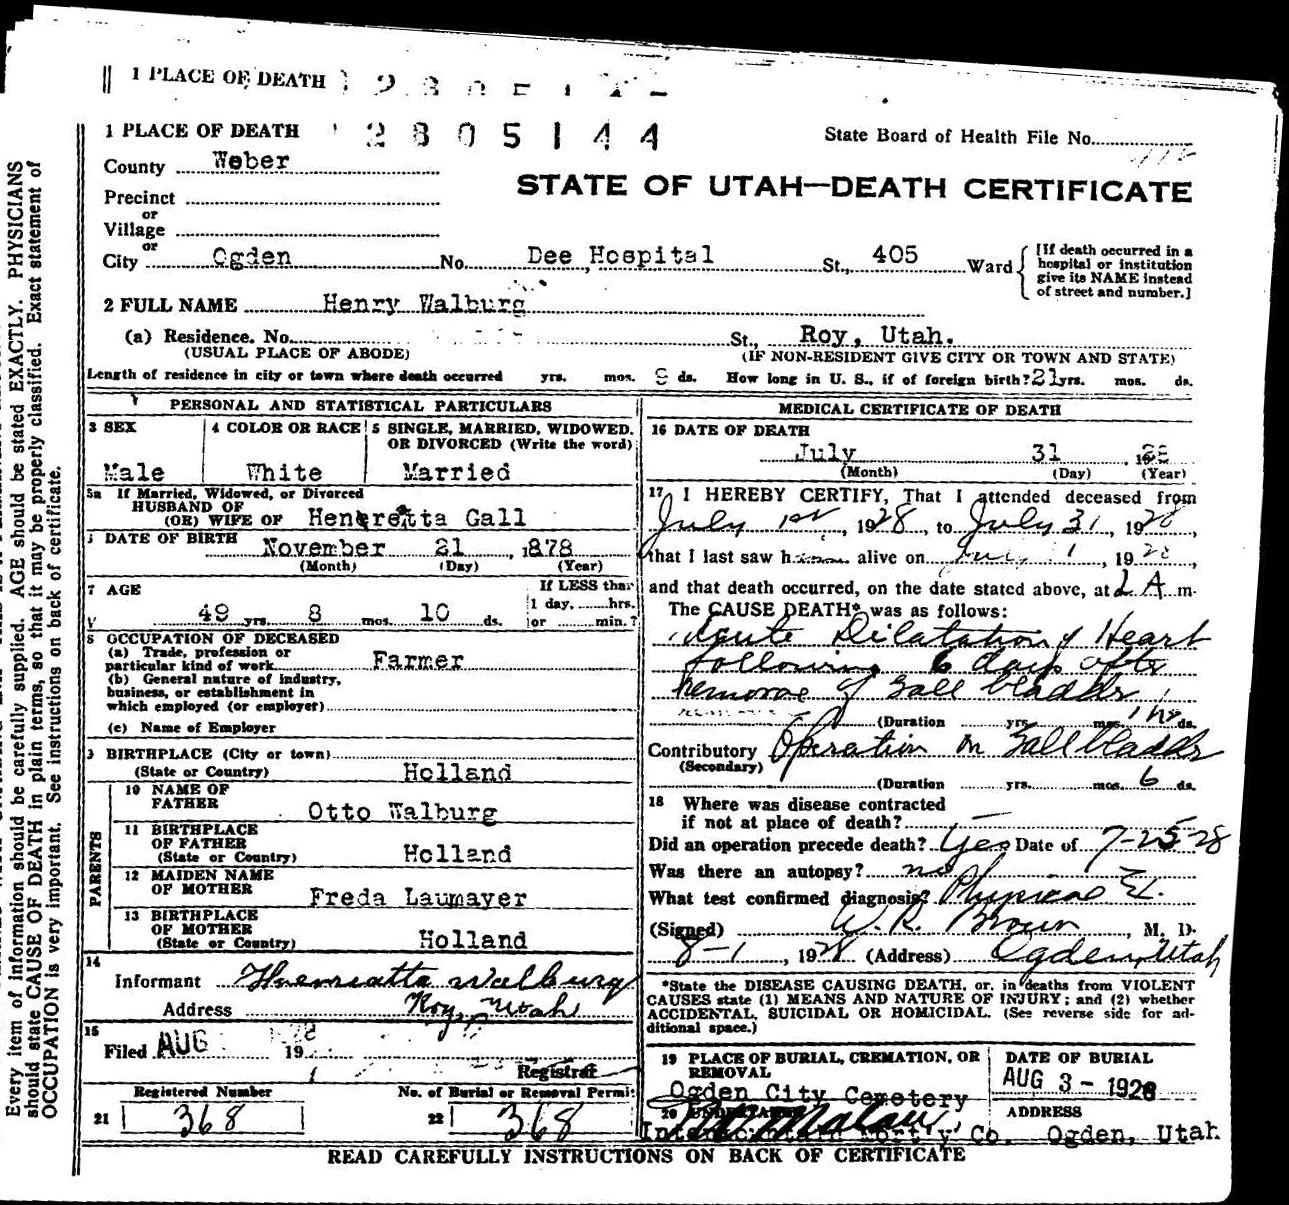 1 PLACE OF DEATH
1 PLACE OF DEATH 2805144
State Board of Health File No.
County Weber
STATE OF UTAH—DEATH CERTIFICATE
Precinct
or
Village
or
City Ogden No. Dee Hospital St., 405 Ward
[If death occurred in a
hospital or institution
give its NAME instead
of street and number.]
2 FULL NAME Henry Walburg
(a) Residence. No. St., Roy, Utah.
(USUAL PLACE OF ABODE) (IF NON-RESIDENT GIVE CITY OR TOWN AND STATE)
Length of residence in city or town where death occurred yrs. mos. ds. How long in U. S., if of foreign birth? 21 yrs. mos. ds.
PERSONAL AND STATISTICAL PARTICULARS
3 SEX 4 COLOR OR RACE 5 SINGLE, MARRIED, WIDOWED,
OR DIVORCED (Write the word)
Male White Married
5a If Married, Widowed, or Divorced
HUSBAND OF
(OR) WIFE OF Henrietta Gall
DATE OF BIRTH November 21, 1878
(Month) (Day) (Year)
7 AGE If LESS than
1 day, hrs.
49 yrs. 8 mos. 10 ds. or min.?
8 OCCUPATION OF DECEASED
(a) Trade, profession or
particular kind of work Farmer
(b) General nature of industry,
business, or establishment in
which employed (or employer)
(c) Name of Employer
BIRTHPLACE (City or town)
(State or Country) Holland
PARENTS
10 NAME OF
FATHER Otto Walburg
11 BIRTHPLACE
OF FATHER
(State or Country) Holland
12 MAIDEN NAME
OF MOTHER Freda Laumayer
13 BIRTHPLACE
OF MOTHER
(State or Country) Holland
14
Informant Henriatta Walburg
Address Roy, Utah
15
Filed AUG 19
Registrar
Registered Number No. of Burial or Removal Permit
21 368 22 368
MEDICAL CERTIFICATE OF DEATH
16 DATE OF DEATH
July 31, 1928
(Month) (Day) (Year)
17 I HEREBY CERTIFY, That I attended deceased from
July 1st, 1928, to July 31, 1928,
that I last saw him alive on 1928,
and that death occurred, on the date stated above, at A m.
The CAUSE DEATH* was as follows:
Acute Dilatation of Heart
following 6 days after
removae of Gall bladder
(Duration yrs. mos. 1 hr ds.
Contributory Operation on Gallbladder
(Secondary)
(Duration yrs. mos. 6 ds.
18 Where was disease contracted
if not at place of death? —
Did an operation precede death? Yes Date of 7-25-28
Was there an autopsy? no
What test confirmed diagnosis? Physical Ex.
(Signed) W. R. Brown, M. D.
8-1, 1928 (Address) Ogden, Utah
*State the DISEASE CAUSING DEATH, or, in deaths from VIOLENT
CAUSES state (1) MEANS AND NATURE OF INJURY; and (2) whether
ACCIDENTAL, SUICIDAL OR HOMICIDAL. (See reverse side for ad-
ditional space.)
19 PLACE OF BURIAL, CREMATION, OR
REMOVAL
Ogden City Cemetery
DATE OF BURIAL
AUG 3 - 1928
20 UNDERTAKER ADDRESS
Intermountain Mort'y Co. Ogden, Utah
READ CAREFULLY INSTRUCTIONS ON BACK OF CERTIFICATE
Every item of information should be carefully supplied. AGE should be stated EXACTLY. PHYSICIANS
should state CAUSE OF DEATH in plain terms, so that it may be properly classified. Exact statement of
OCCUPATION is very important. See instructions on back of certificate.